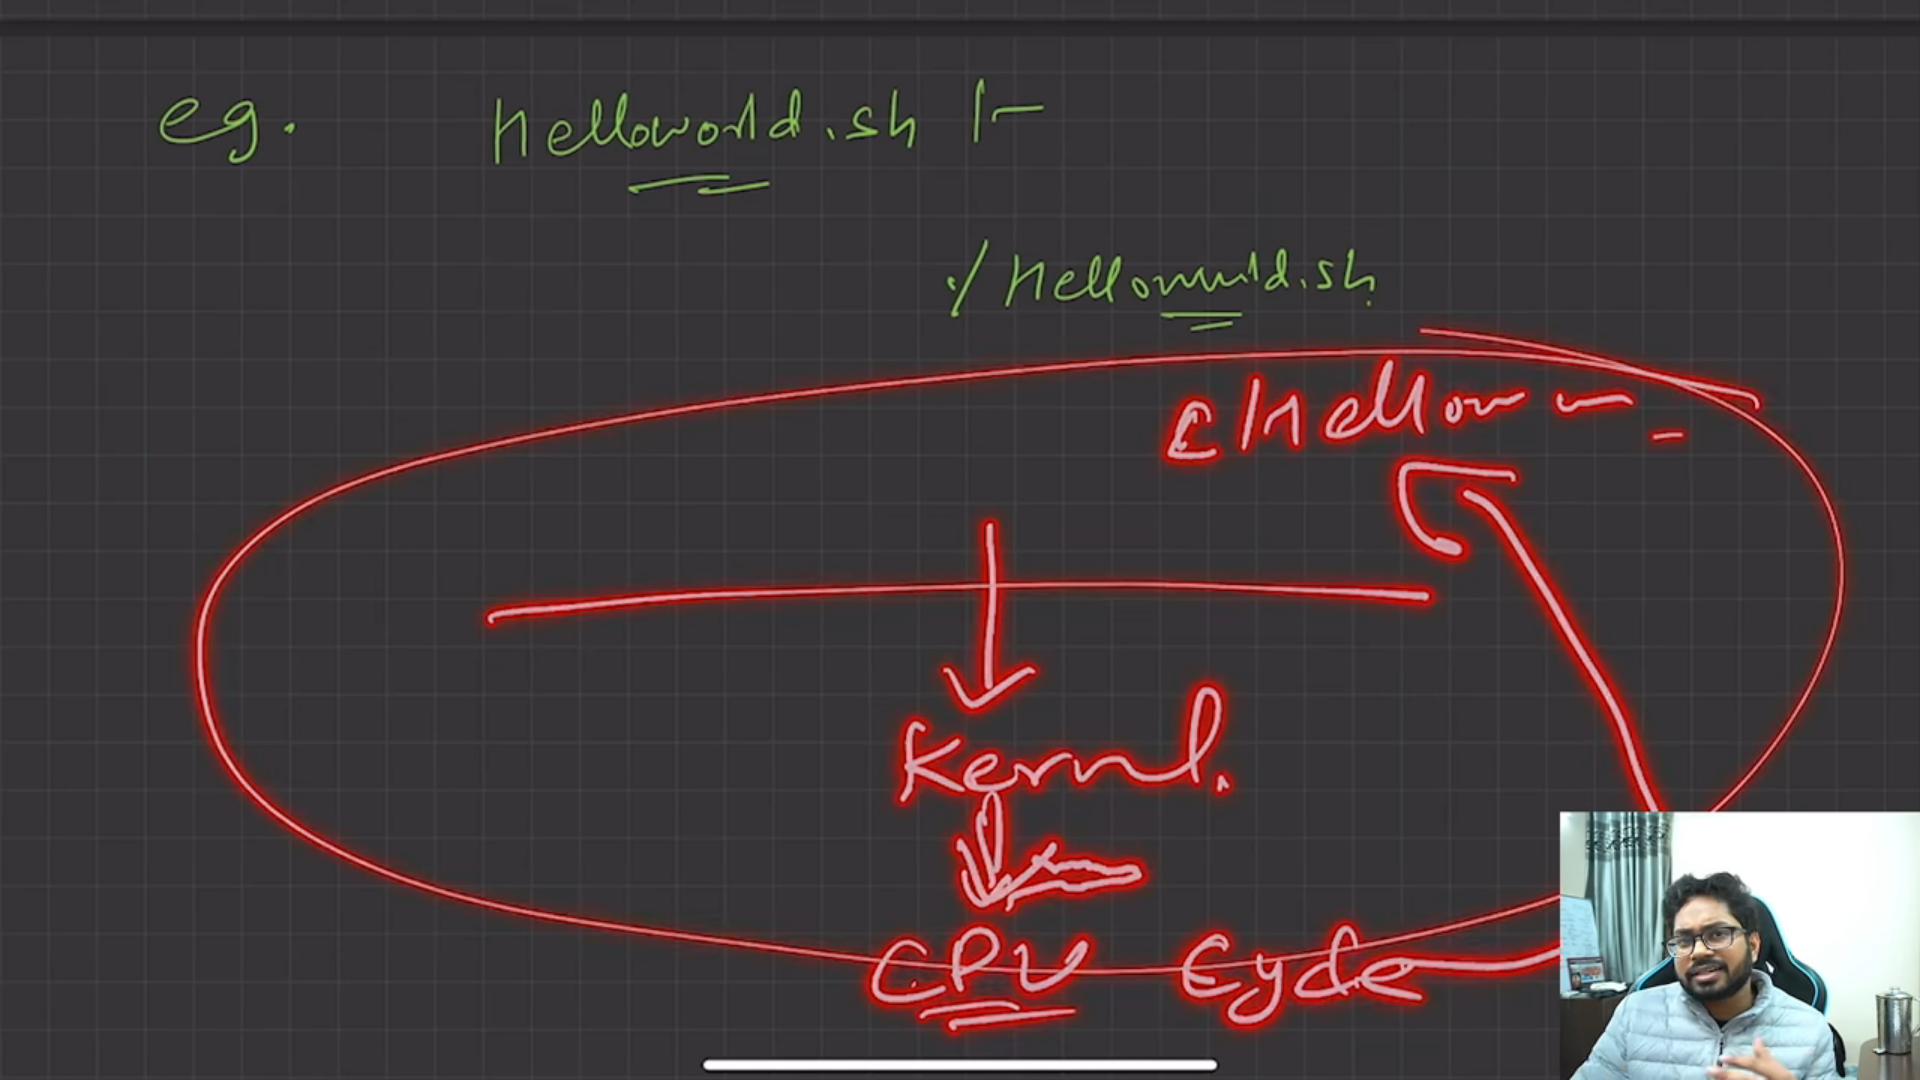 eg. Helloworld.sh :-
./Helloworld.sh
Hellow
Kernel.
CPU Cycle